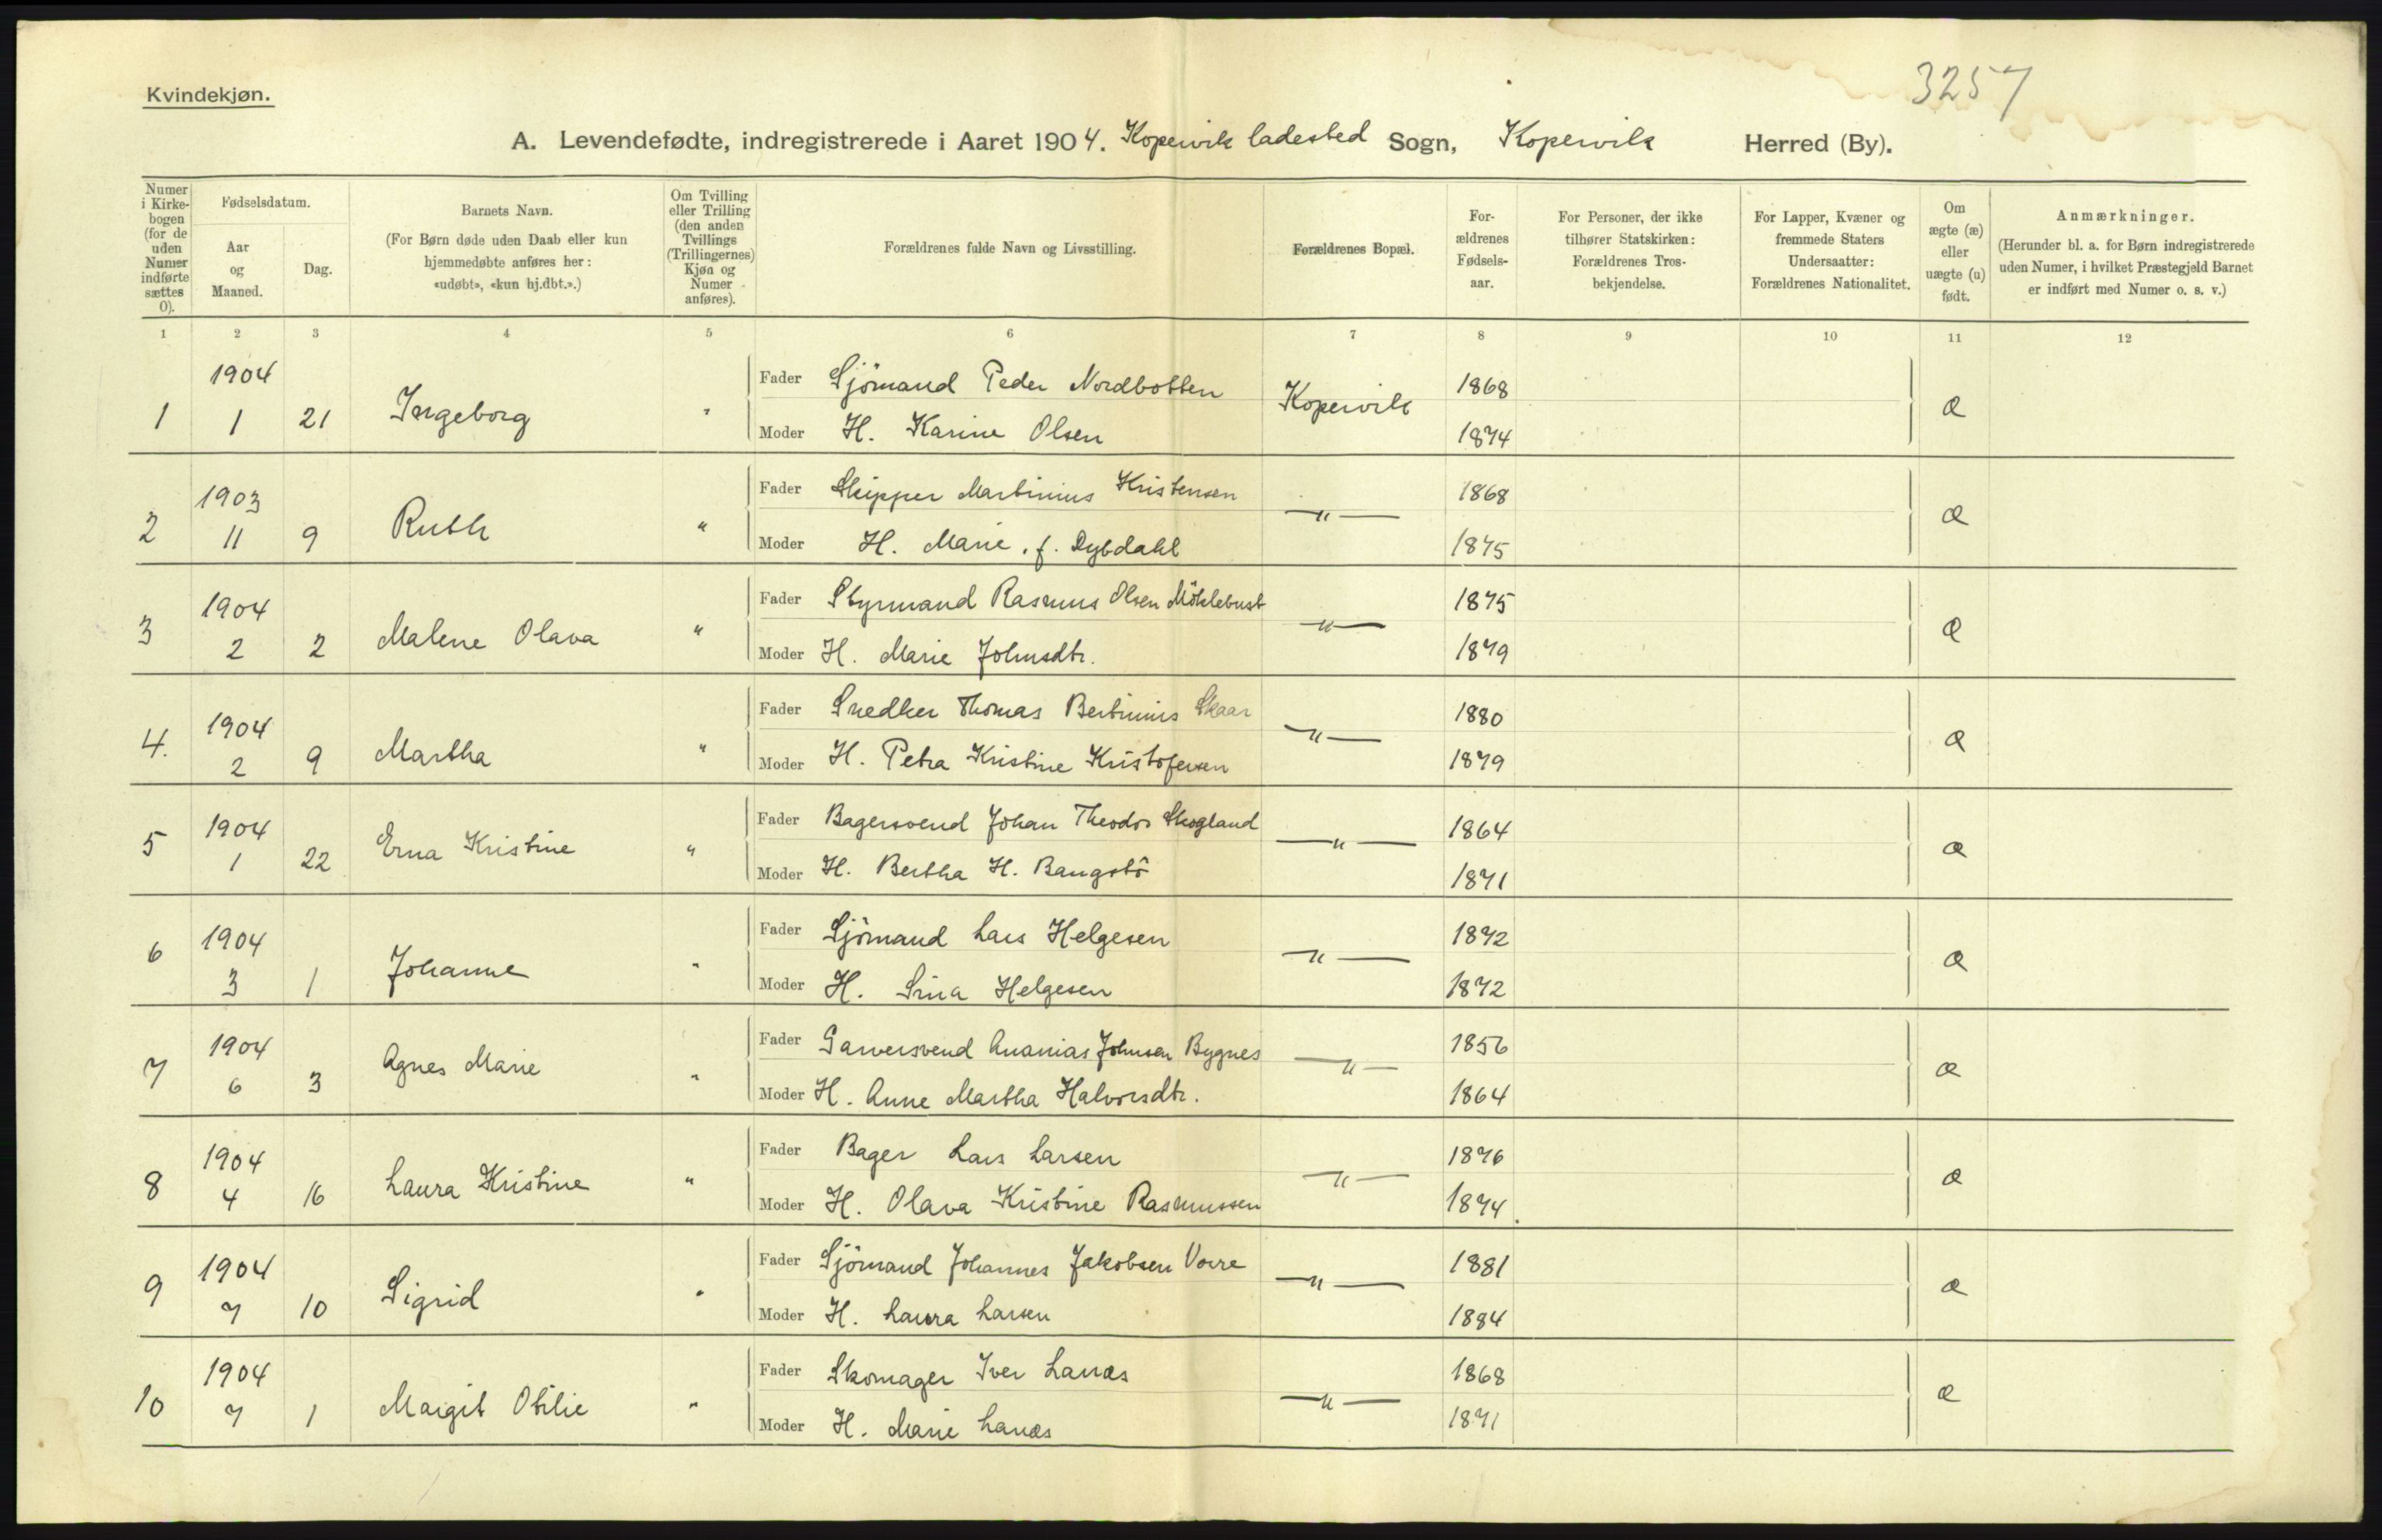 3257
Kvindekjøn.
A. Levendefødte, indregistrerede i Aaret 1904. Kopervik ladested Sogn, Kopervik Herred (By).
Numer i Kirkebogen (for de uden Numer indførte sættes 0).
Fødselsdatum.
Aar og Maaned.
Dag.
Barnets Navn.
(For Børn døde uden Daab eller kun
hjemmedøbte anføres her:
«udøbt», «kun hj.dbt.».)
Om Tvilling
eller Trilling
(den anden
Tvillings
(Trillingernes)
Kjøn og
Numer
anføres).
Forældrenes fulde Navn og Livsstilling.
Forældrenes Bopæl.
For-
ældrenes
Fødsels-
aar.
For Personer, der ikke
tilhører Statskirken:
Forældrenes Tros-
bekjendelse.
For Lapper, Kvæner og
fremmede Staters
Undersaatter:
Forældrenes Nationalitet.
Om
ægte (æ)
eller
uægte (u)
født.
Anmærkninger.
(Herunder bl. a. for Børn indregistrerede
uden Numer, i hvilket Præstegjeld Barnet
er indført med Numer o. s. v.)
1 2 3 4 5 6 7 8 9 10 11 12
1904 Fader Sjömand Peder Nordbotten Kopervik 1868
1 1 21 Ingeborg " Moder H. Karine Olsen 1874 æ
1903 Fader Skipper Martinius Kristensen —"— 1868
2 11 9 Ruth " Moder H. Marie, f. Dybdahl 1875 æ
1904 Fader Styrmand Rasmus Olsen Möklebust —"— 1875
3 2 2 Malene Olava " Moder H. Marie Johnsdtr. 1879 æ
1904 Fader Snedker Thomas Bertinius Skaar —"— 1880
4. 2 9 Martha " Moder H. Petra Kristine Kristofersen 1879 æ
1904 Fader Bagersvend Johan Theodor Skogland —"— 1864
5 1 22 Erna Kristine " Moder H. Bertha H. Bangstö 1871 æ
1904 Fader Sjömand Lars Helgesen —"— 1872
6 3 1 Johanne " Moder H. Sina Helgesen 1872 æ
1904 Fader Garversvend Ananias Johnsen Bygnes —"— 1856
7 6 3 Agnes Marie " Moder H. Anne Martha Halvorsdtr. 1864 æ
1904 Fader Bager Lars Larsen —"— 1876
8 4 16 Laura Kristine " Moder H. Olava Kristine Rasmussen 1874. æ
1904 Fader Sjömand Johannes Jakobsen Vorre —"— 1881
9 7 10 Sigrid " Moder H. Laura Larsen 1884 æ
1904 Fader Skomager Iver Lanæs —"— 1868
10 7 1 Margit Otilie " Moder H. Marie Lanæs 1871 æ